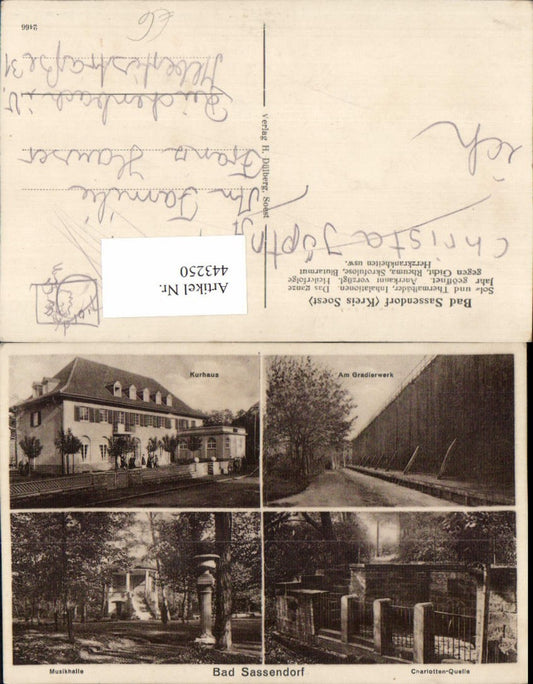 Bad Sassendorf (Kreis Soest)
Sol- und Thermalbäder, Inhalationen. Das ganze
Jahr geöffnet. Anerkannt vorzügl. Heilerfolge
gegen Gicht, Rheuma, Skrofulose, Blutarmut
Herzkrankheiten usw.
Christa
ich
Verlag H. Düllberg, Soest
Familie
Franz Hauser
31
2466
Artikel Nr.
443250
Kurhaus
Am Gradierwerk
Musikhalle
Bad Sassendorf
Charlotten-Quelle